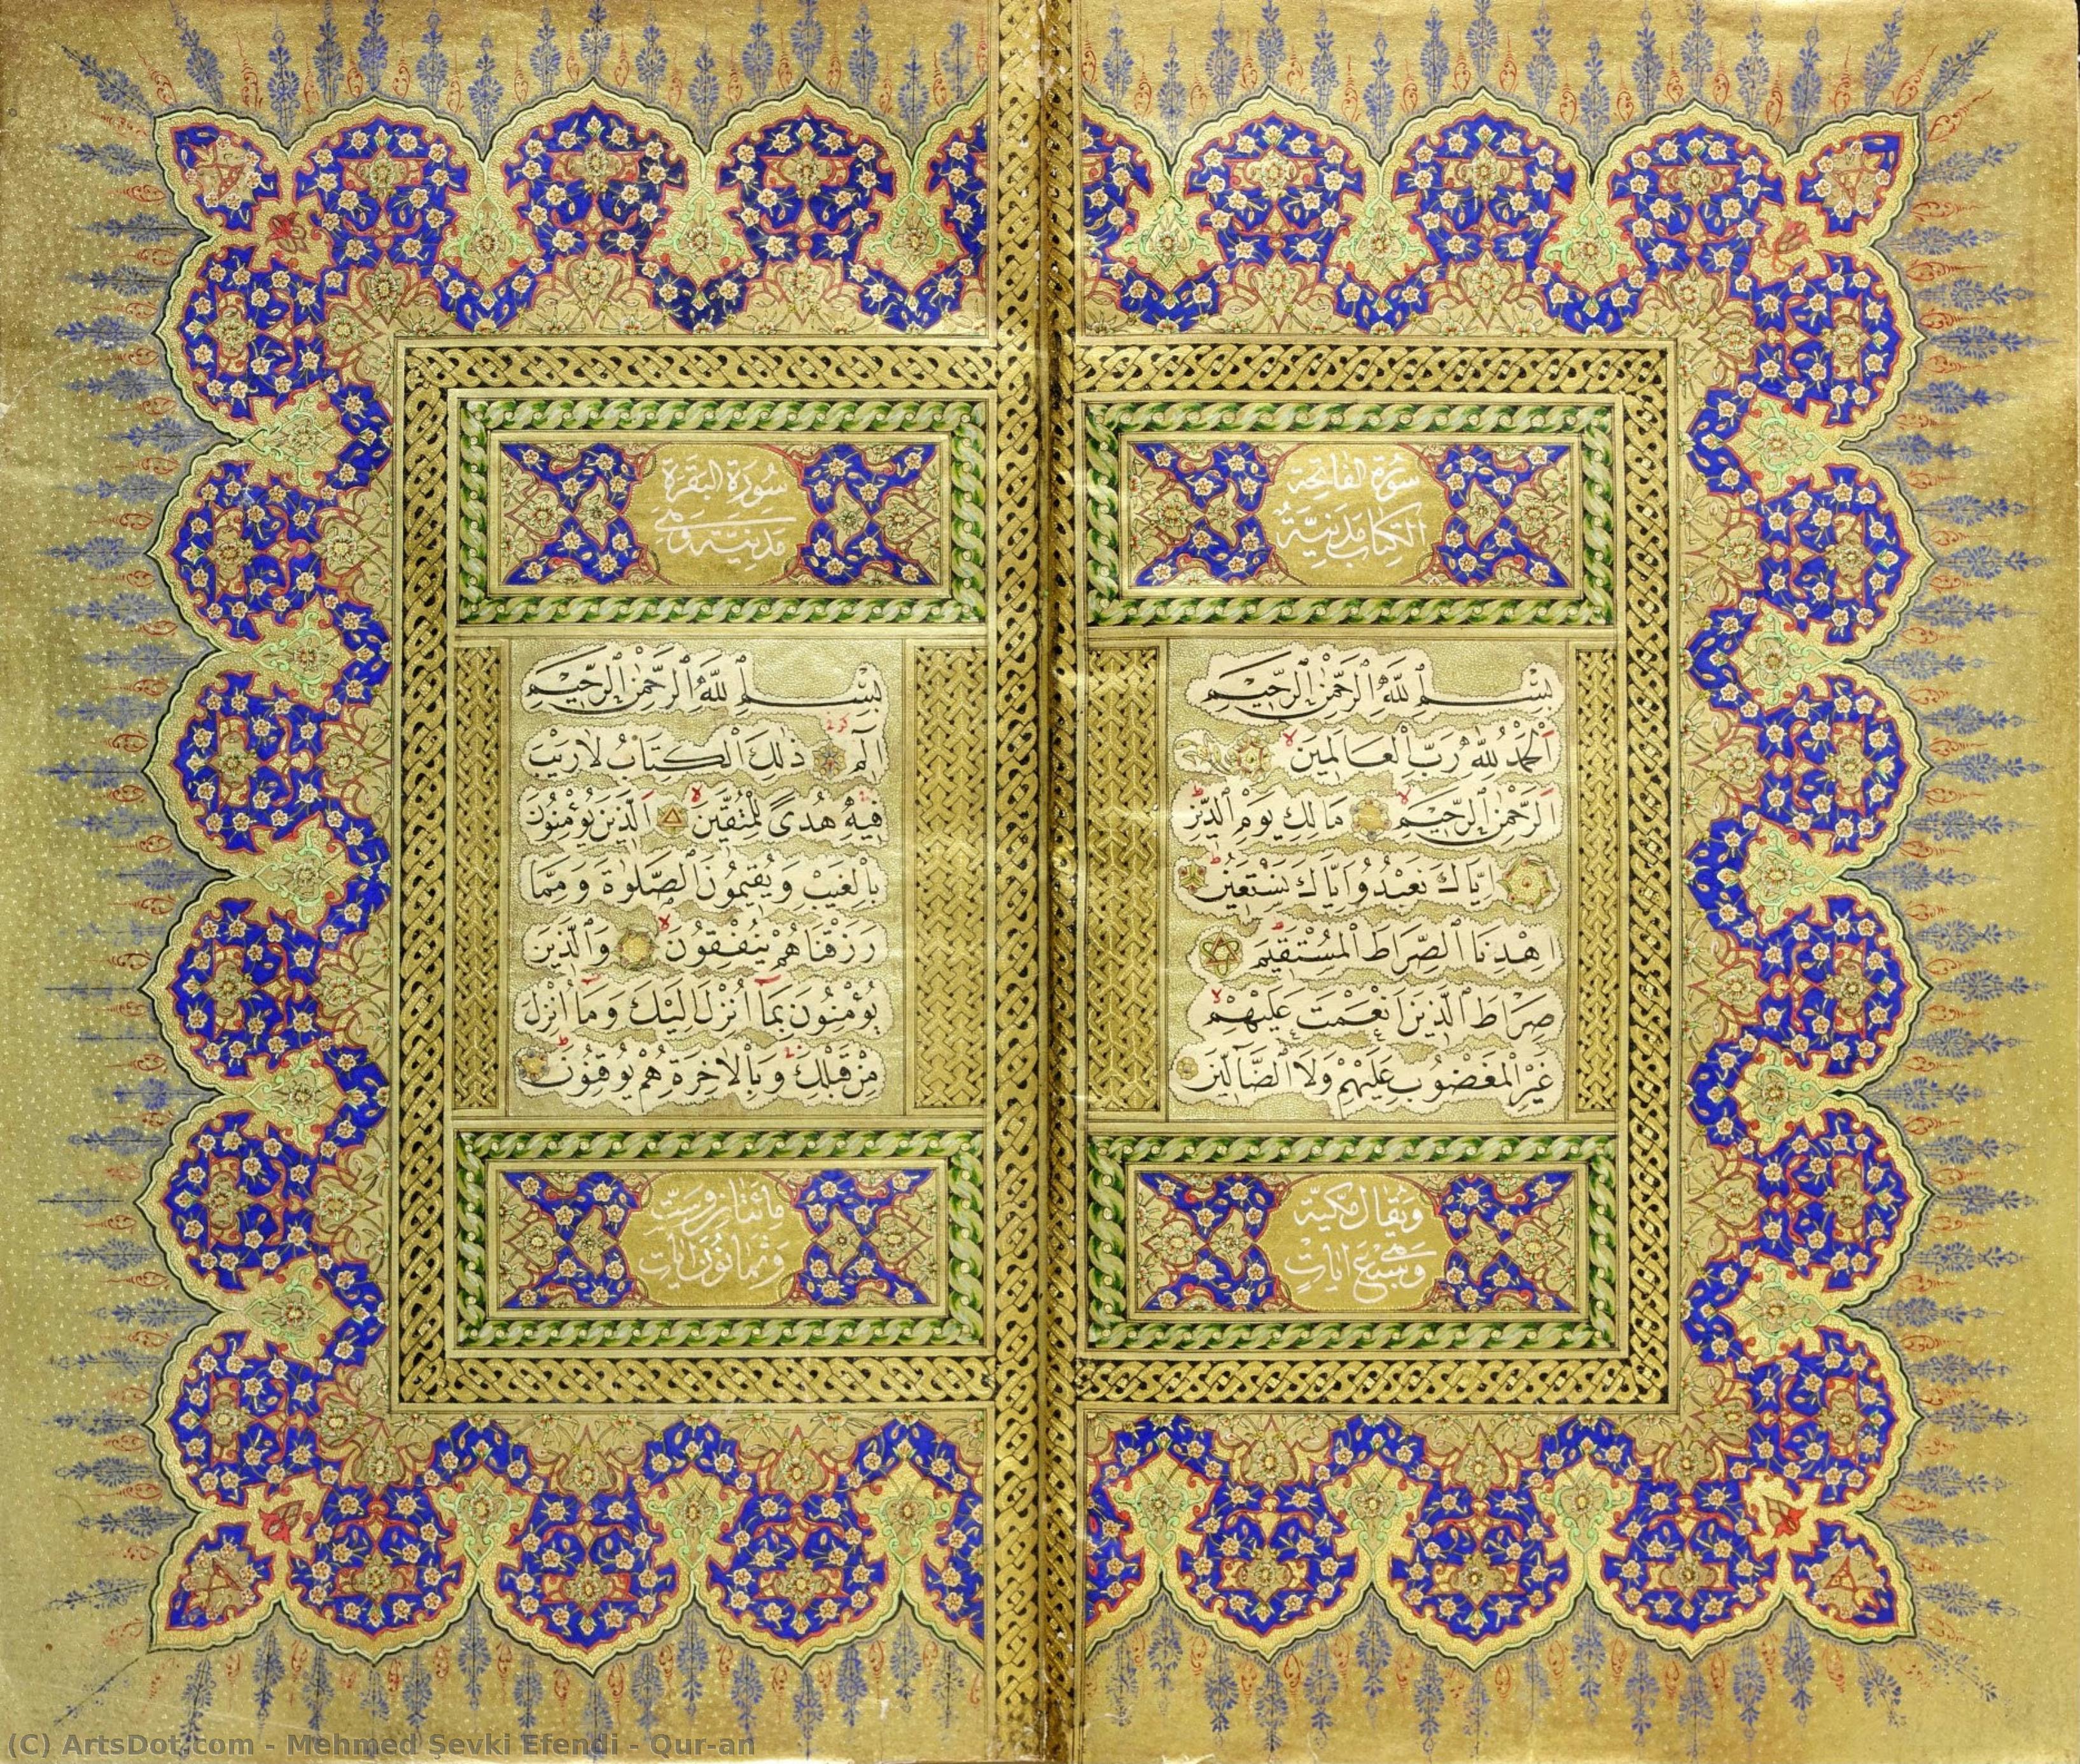 سورة الفاتحة
الكتاب مدنية
بِسْمِ ٱللّٰهِ ٱلرَّحْمٰنِ ٱلرَّحِيمِ
اَلْحَمْدُ لِلّٰهِ رَبِّ الْعَالَمِينَ
اَلرَّحْمٰنِ ٱلرَّحِيمِ مَالِكِ يَوْمِ ٱلدِّينِ
اِيَّاكَ نَعْبُدُ وَاِيَّاكَ نَسْتَعِينُ
اِهْدِنَا ٱلصِّرَاطَ ٱلْمُسْتَقِيمَ
صِرَاطَ ٱلَّذِينَ اَنْعَمْتَ عَلَيْهِمْ
غَيْرِ ٱلْمَغْضُوبِ عَلَيْهِمْ وَلَا ٱلضَّالِّينَ
ويقال مكية
وهي سبع ايات
سورة البقرة
مدنية وهي
بِسْمِ ٱللّٰهِ ٱلرَّحْمٰنِ ٱلرَّحِيمِ
الٓمٓ ذٰلِكَ الْكِتَابُ لَا رَيْبَ
فِيهِ هُدًى لِلْمُتَّقِينَ اَلَّذِينَ يُؤْمِنُونَ
بِالْغَيْبِ وَيُقِيمُونَ ٱلصَّلٰوةَ وَمِمَّا
رَزَقْنَاهُمْ يُنْفِقُونَ وَٱلَّذِينَ
يُؤْمِنُونَ بِمَٓا اُنْزِلَ اِلَيْكَ وَمَٓا اُنْزِلَ
مِنْ قَبْلِكَ وَبِالْاٰخِرَةِ هُمْ يُوقِنُونَ
مائتان وست
وثمانون ايات
(C) ArtsDot.com - Mehmed Sevki Efendi - Qur-an